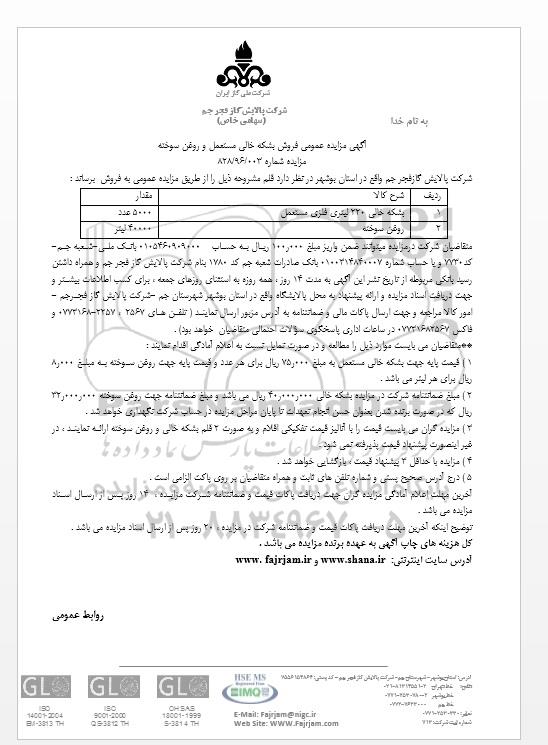 شرکت ملی گاز ایران
شرکت پالایش گاز فجر جم
(سهامی خاص)
به نام خدا
آگهی مزایده عمومی فروش بشکه خالی مستعمل و روغن سوخته
مزایده شماره ۸۲۸/۹۶/۰۰۳
شرکت پالایش گازفجر جم واقع در استان بوشهر در نظر دارد قلم مشروحه ذیل را از طریق مزایده عمومی به فروش برساند :
ردیف شرح کالا مقدار
۱ بشکه خالی ۲۲۰ لیتری فلزی مستعمل ۵۰۰۰ عدد
۲ روغن سوخته ۴۰۰۰۰ لیتر
متقاضیان شرکت درمزایده میتوانند ضمن واریز مبلغ ۱۰۰٫۰۰۰ ریال به حساب ۰۱۰۵۴۶۰۹۰۹۰۰۰ بانک ملی-شعبه جم-
کد۷۷۳۰ و یا حساب شماره ۰۱۰۰۳۱۴۸۴۰۰۰۷ بانک صادرات شعبه جم کد ۱۷۸۰ بنام شرکت پالایش گاز فجر جم و همراه داشتن
رسید بانکی مربوطه از تاریخ نشر این آگهی به مدت ۱۴ روز ، همه روزه به استثنای روزهای جمعه ، برای کسب اطلاعات بیشتر و
جهت دریافت اسناد مزایده و ارائه پیشنهاد به محل پالایشگاه واقع در استان بوشهر شهرستان جم -شرکت پالایش گاز فجرجم -
امور کالا مراجعه و جهت ارسال پاکات مالی و ضمانتنامه به آدرس مزبور ارسال نمایند ( تلفن های ۲۵۶۷ ، ۲۲۵۷-۰۷۷۳۱۶۸ و
فاکس ۰۷۷۳۱۶۸۲۵۶۷ در ساعات اداری پاسخگوی سؤالات احتمالی متقاضیان خواهد بود) .
**متقاضیان می بایست موارد ذیل را مطالعه و در صورت تمایل نسبت به اعلام آمادگی اقدام نمایند :
۱ ) قیمت پایه جهت بشکه خالی مستعمل به مبلغ ۷۵٫۰۰۰ ریال برای هر عدد و قیمت پایه جهت روغن سوخته به مبلغ ۸٫۰۰۰
ریال برای هر لیتر می باشد .
۲ ) مبلغ ضمانتنامه شرکت در مزایده بشکه خالی ۴۰٫۰۰۰٫۰۰۰ ریال می باشد و مبلغ ضمانتنامه جهت روغن سوخته ۳۲٫۰۰۰٫۰۰۰
ریال که در صورت برنده شدن بعنوان حسن انجام تعهدات تا پایان مراحل مزایده در حساب شرکت نگهداری خواهد شد .
۳ ) مزایده گران می بایست قیمت را با آنالیز قیمت تفکیکی اقلام و به صورت ۲ قلم بشکه خالی و روغن سوخته ارائه نمایند ، در
غیر اینصورت پیشنهاد قیمت پذیرفته نمی شود .
۴ ) مزایده با حداقل ۳ پیشنهاد قیمت ، بازگشایی خواهد شد .
۵ ) درج آدرس صحیح پستی و شماره تلفن های ثابت و همراه متقاضیان بر روی پاکت الزامی است .
آخرین مهلت اعلام آمادگی مزایده گران جهت دریافت پاکات قیمت و ضمانتنامه شرکت مزایده ، ۱۴ روز پس از ارسال اسناد
مزایده می باشد .
توضیح اینکه آخرین مهلت دریافت پاکات قیمت و ضمانتنامه شرکت در مزایده ، ۲۰ روز پس از ارسال اسناد مزایده می باشد .
کل هزینه های چاپ آگهی به عهده برنده مزایده می باشد .
آدرس سایت اینترنتی: www.shana.ir و www. fajrjam.ir
روابط عمومی
۰۲۱-۸۸۳۴۹۶۷۰-۵
HSE MS
IMQ
GL GL GL
ISO 14001-2004 EM-3813 TH
ISO 9001-2000 QS-3812 TH
OHSAS 18001-1999 S-3814 TH
E-Mail: Fajrjam@nigc.ir
Web Site: WWW.Fajrjam.com
آدرس: استان بوشهر - شهرستان جم - شرکت پالایش گاز فجر جم - کد پستی:
شماره ثبت شرکت: ۷۱۳